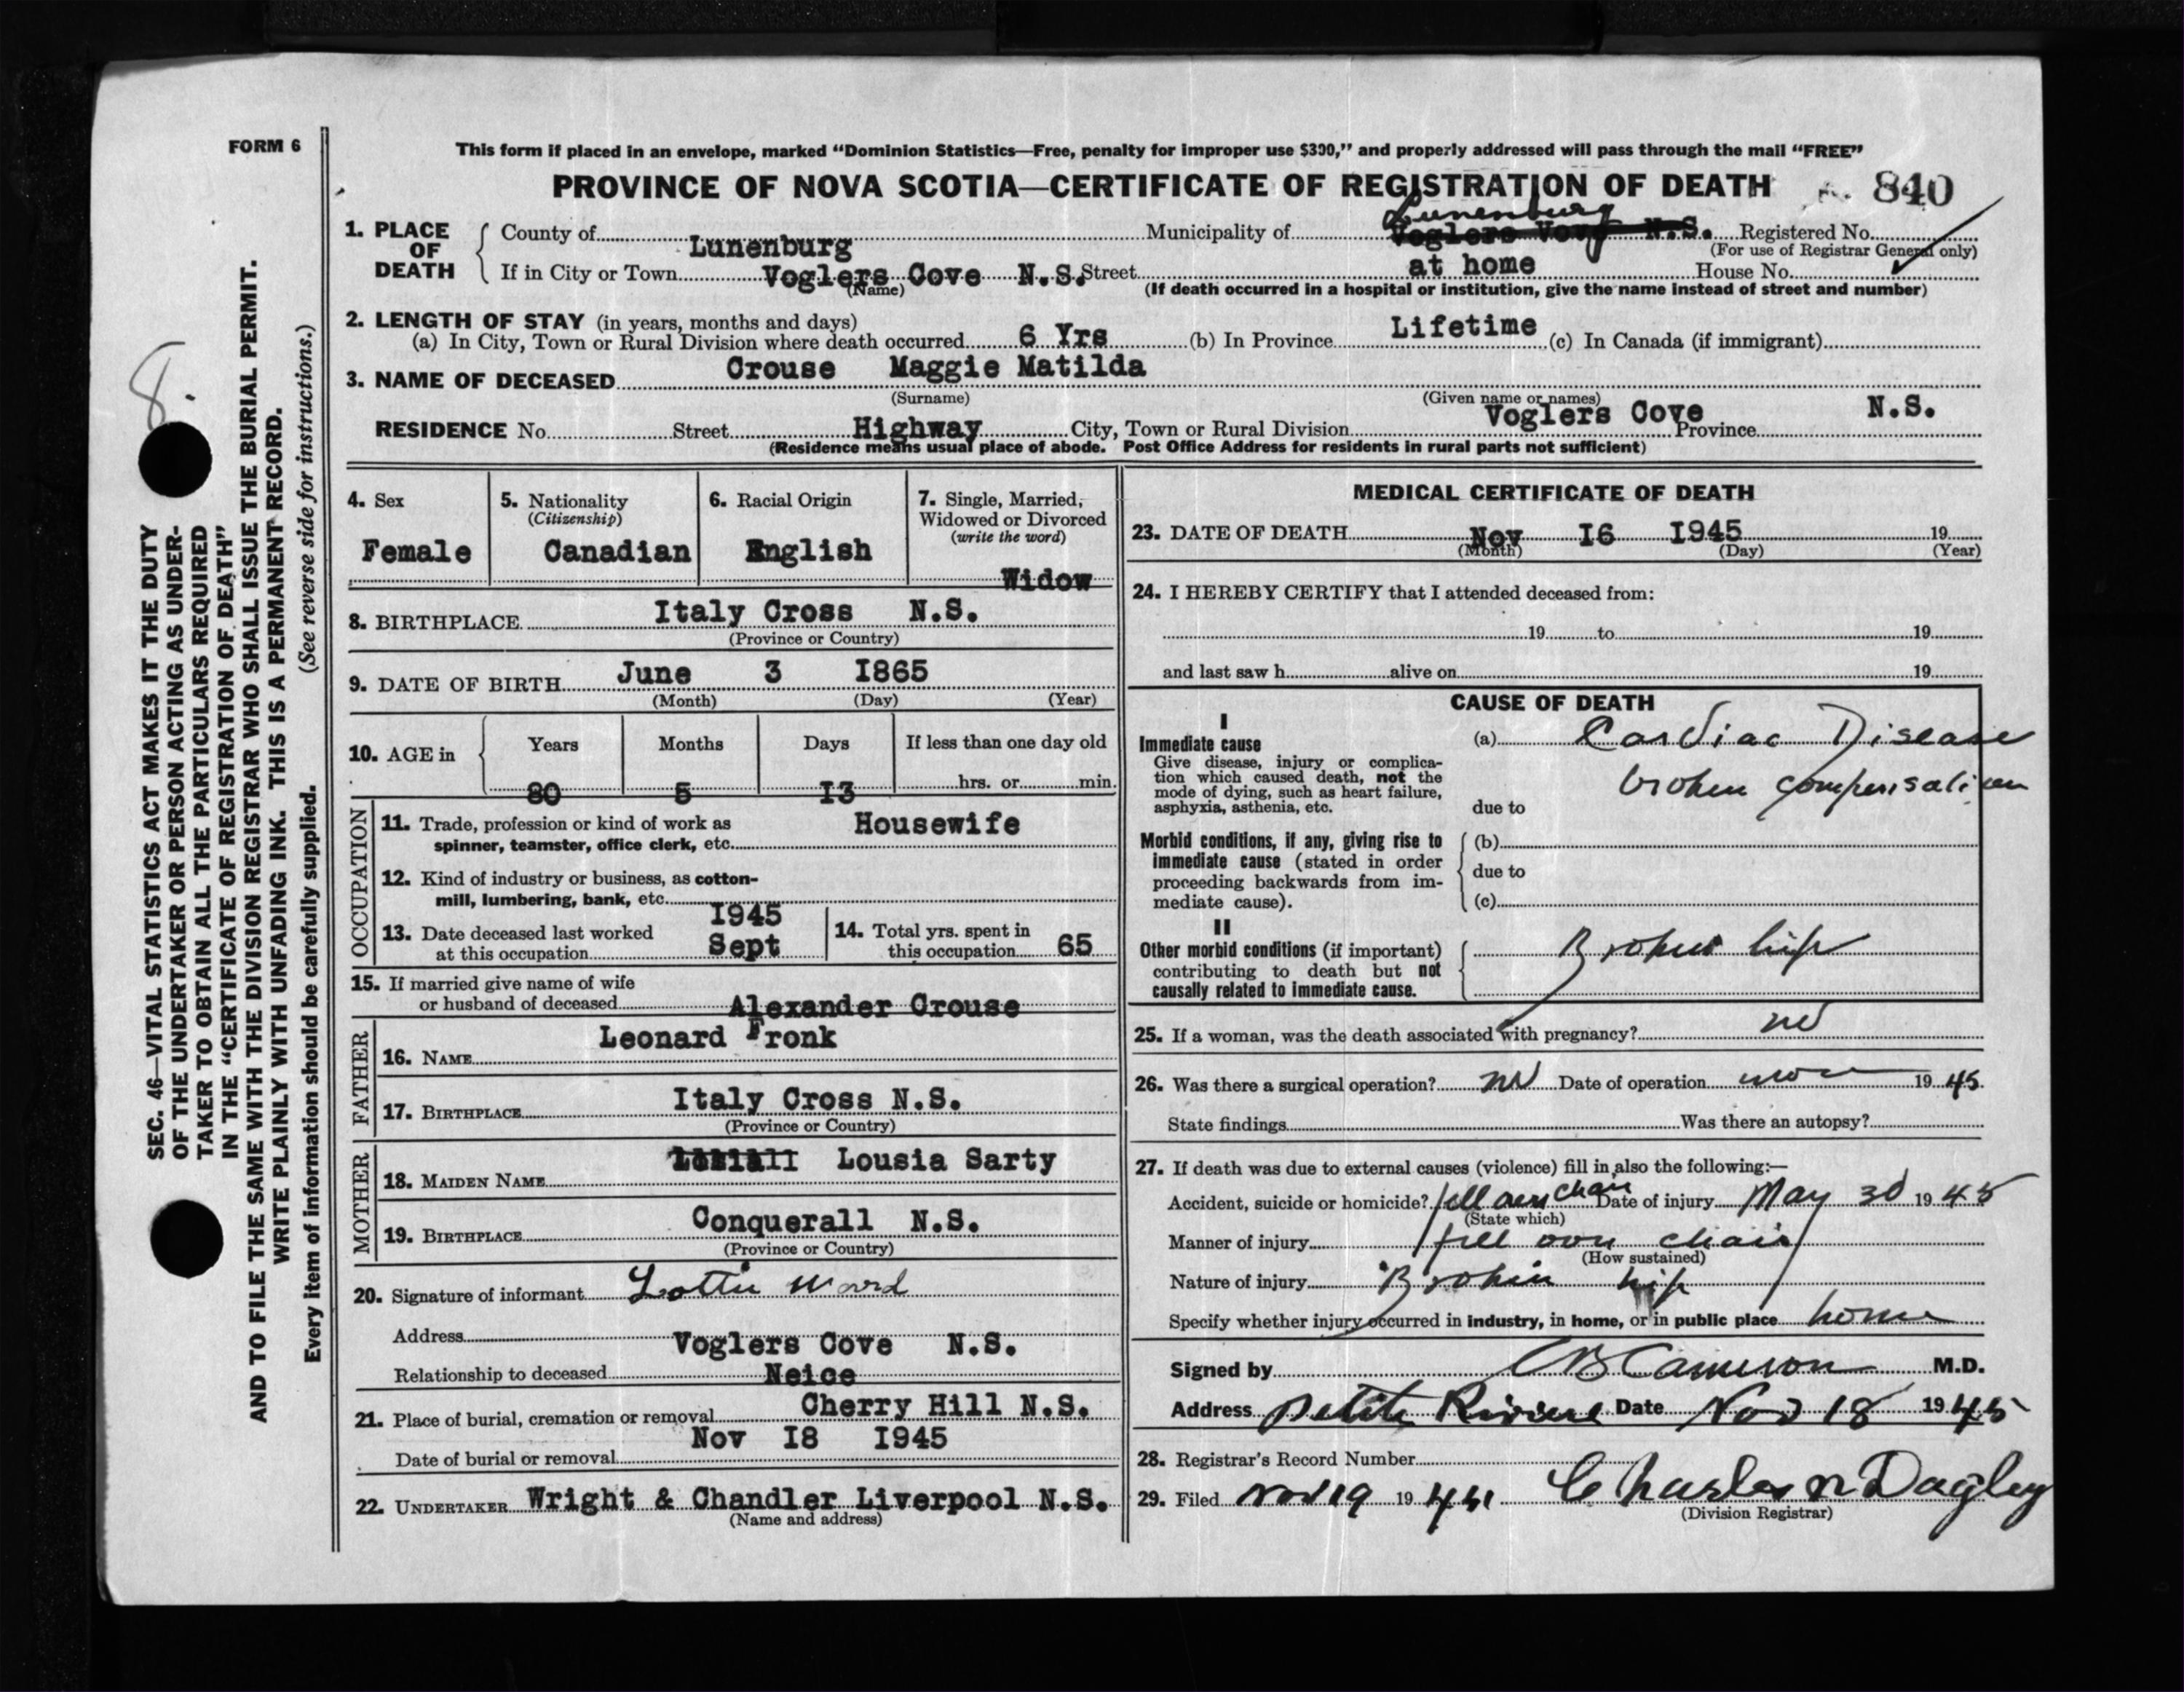 FORM 6
This form if placed in an envelope, marked "Dominion Statistics—Free, penalty for improper use $300," and properly addressed will pass through the mail "FREE"
PROVINCE OF NOVA SCOTIA—CERTIFICATE OF REGISTRATION OF DEATH 840
1. PLACE OF DEATH
County of Lunenburg Municipality of Lunenburg Voglers Vove N.S. Registered No.
(For use of Registrar General only)
If in City or Town Voglers Cove N.S. Street at home House No.
(Name) (If death occurred in a hospital or institution, give the name instead of street and number)
2. LENGTH OF STAY (in years, months and days)
(a) In City, Town or Rural Division where death occurred 6 Yrs (b) In Province Lifetime (c) In Canada (if immigrant)
3. NAME OF DECEASED Crouse Maggie Matilda
(Surname) (Given name or names)
RESIDENCE No. Street Highway City, Town or Rural Division Voglers Cove Province N.S.
(Residence means usual place of abode. Post Office Address for residents in rural parts not sufficient)
4. Sex
Female
5. Nationality
(Citizenship)
Canadian
6. Racial Origin
English
7. Single, Married,
Widowed or Divorced
(write the word)
Widow
8. BIRTHPLACE Italy Cross N.S.
(Province or Country)
9. DATE OF BIRTH June 3 I865
(Month) (Day) (Year)
10. AGE in
Years Months Days If less than one day old
80 5 I3 hrs. or min.
OCCUPATION
11. Trade, profession or kind of work as
spinner, teamster, office clerk, etc. Housewife
12. Kind of industry or business, as cotton-
mill, lumbering, bank, etc.
13. Date deceased last worked
at this occupation I945 Sept
14. Total yrs. spent in
this occupation 65
15. If married give name of wife
or husband of deceased Alexander Crouse
FATHER
16. NAME Leonard Fronk
17. BIRTHPLACE Italy Cross N.S.
(Province or Country)
MOTHER
18. MAIDEN NAME Lousia Sarty
19. BIRTHPLACE Conquerall N.S.
(Province or Country)
20. Signature of informant Lottie Ward
Address Voglers Cove N.S.
Relationship to deceased Neice
21. Place of burial, cremation or removal Cherry Hill N.S.
Date of burial or removal Nov I8 I945
22. UNDERTAKER Wright & Chandler Liverpool N.S.
(Name and address)
MEDICAL CERTIFICATE OF DEATH
23. DATE OF DEATH Nov I6 I945 19
(Month) (Day) (Year)
24. I HEREBY CERTIFY that I attended deceased from:
19 to 19
and last saw h alive on 19
CAUSE OF DEATH
I
Immediate cause
Give disease, injury or complica-
tion which caused death, not the
mode of dying, such as heart failure,
asphyxia, asthenia, etc.
(a) Cardiac Disease
broken compensation
due to
Morbid conditions, if any, giving rise to
immediate cause (stated in order
proceeding backwards from im-
mediate cause).
(b)
due to
(c)
II
Other morbid conditions (if important)
contributing to death but not
causally related to immediate cause.
Broken hip
25. If a woman, was the death associated with pregnancy? no
26. Was there a surgical operation? no Date of operation 19 45
State findings Was there an autopsy?
27. If death was due to external causes (violence) fill in also the following:—
Accident, suicide or homicide? fell over chair Date of injury May 30 19 45
(State which)
Manner of injury fell over chair
(How sustained)
Nature of injury Broken hip
Specify whether injury occurred in industry, in home, or in public place home
Signed by CB Cameron M.D.
Address Petite Riviere Date Nov 18 19 45
28. Registrar's Record Number
29. Filed Nov 19 19 45 Charles n Dagley
(Division Registrar)
8.
SEC. 46—VITAL STATISTICS ACT MAKES IT THE DUTY
OF THE UNDERTAKER OR PERSON ACTING AS UNDER-
TAKER TO OBTAIN ALL THE PARTICULARS REQUIRED
IN THE "CERTIFICATE OF REGISTRATION OF DEATH"
AND TO FILE THE SAME WITH THE DIVISION REGISTRAR WHO SHALL ISSUE THE BURIAL PERMIT.
WRITE PLAINLY WITH UNFADING INK. THIS IS A PERMANENT RECORD.
Every item of information should be carefully supplied. (See reverse side for instructions.)